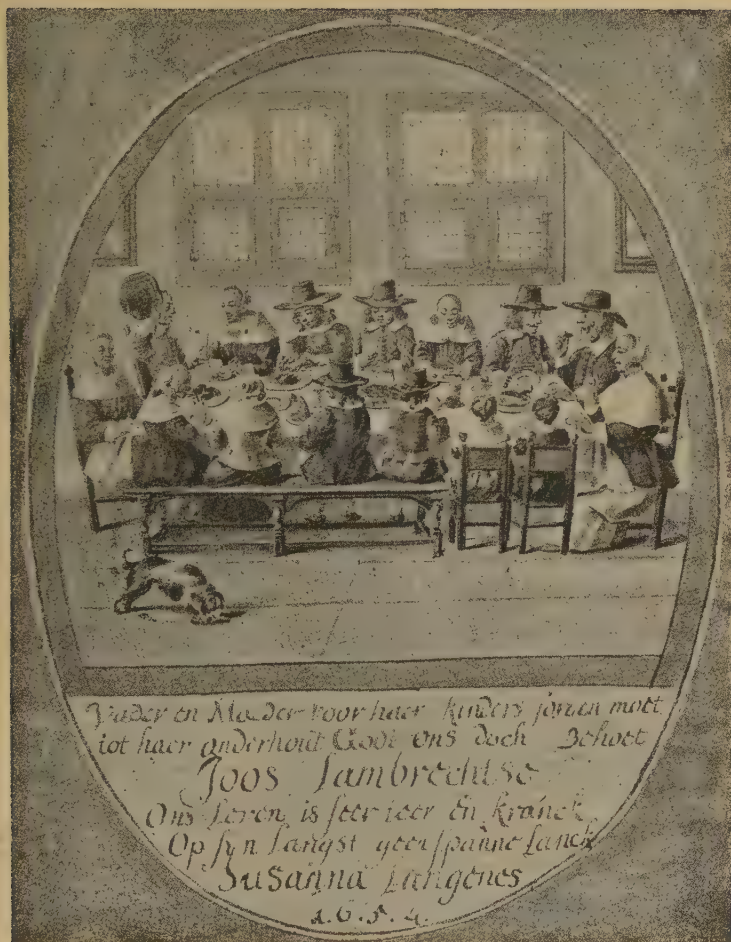 Vader en Moeder voor haer kinders sorgen moet
tot haer onderhout Godt ons doch Behoet
Joos Lambrechtse
Ons Leven is seer teer en kranck
Op syn Langst geen spanne Lanck
Susanna Langenes
1.6.5.4.